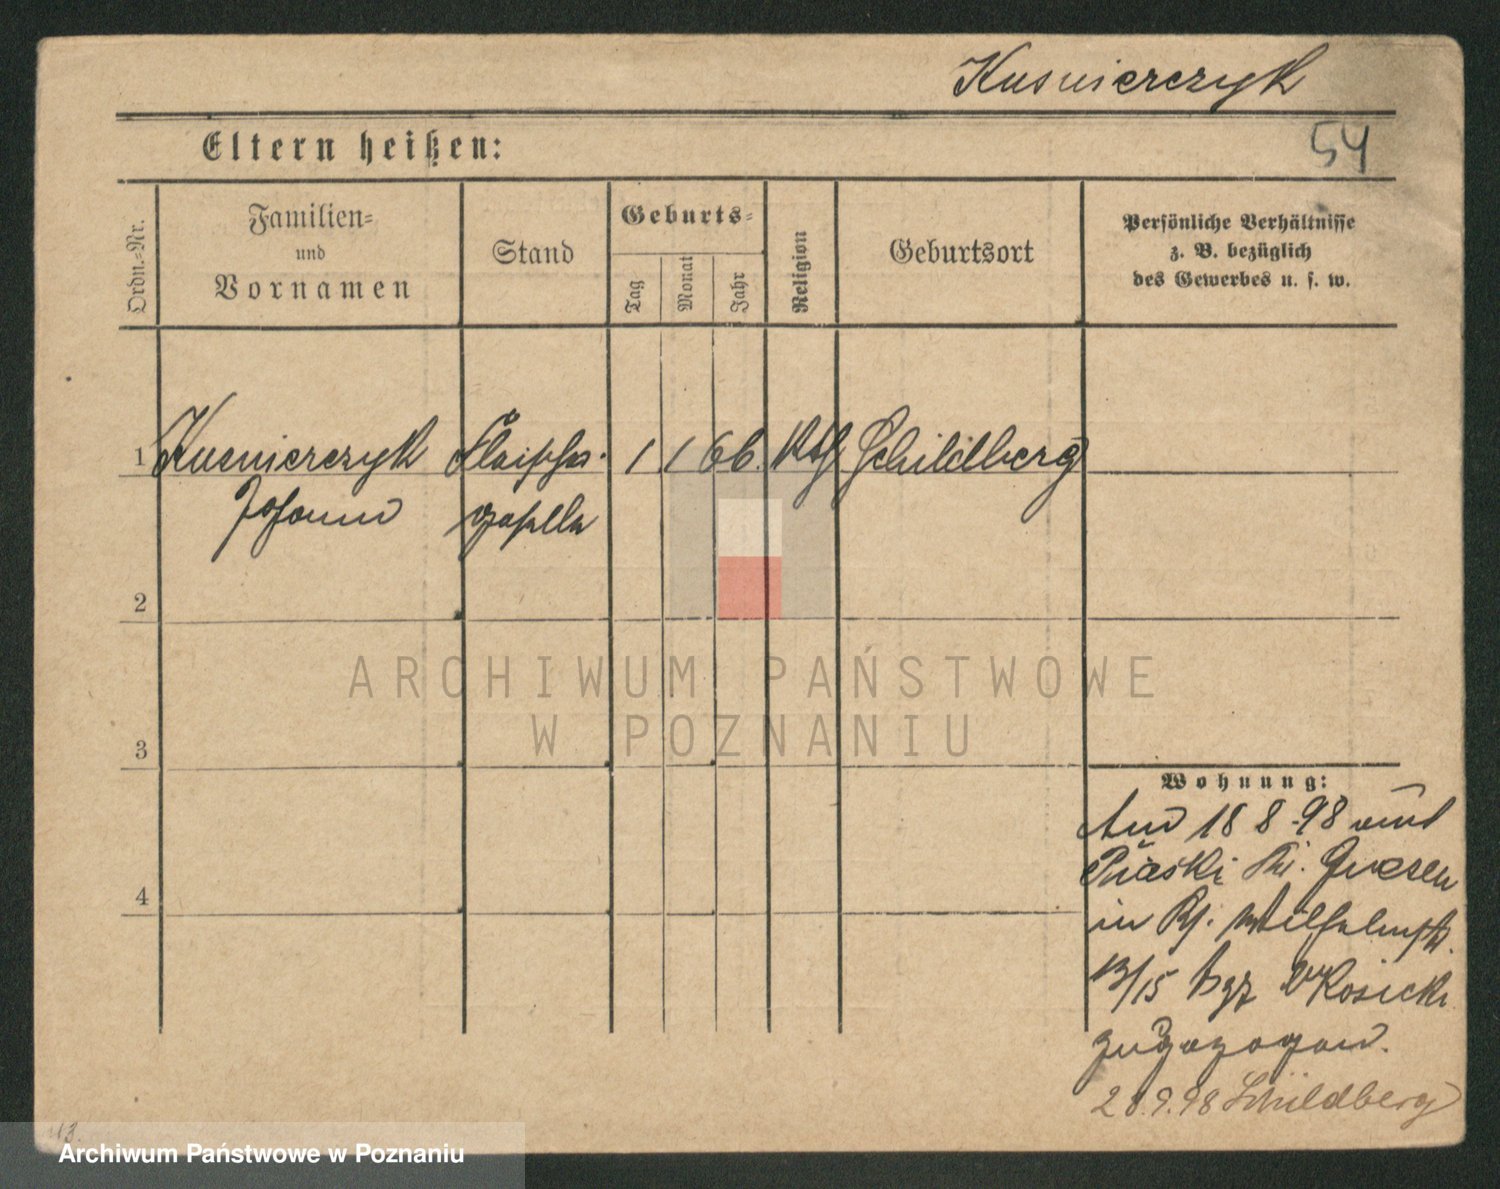 Kusnierczyk
54
Eltern heißen:
Ordn.-Nr.
Familien-
und
Vornamen
Stand
Geburts-
Tag
Monat
Jahr
Religion
Geburtsort
Persönliche Verhältnisse
z. B. bezüglich
des Gewerbes u. s. w.
1 Kusnierczyk Fleischer- 1 1 66. kth Schildberg
Johann geselle
2
3
4
Wohnung:
Am 18 8.98 aus
Piaski Kr. Gnesen
in Wilhelmstr.
13/15 Kosicki
zugezogen.
28.9.98 Schildberg
ARCHIWUM PAŃSTWOWE
W POZNANIU
Archiwum Państwowe w Poznaniu